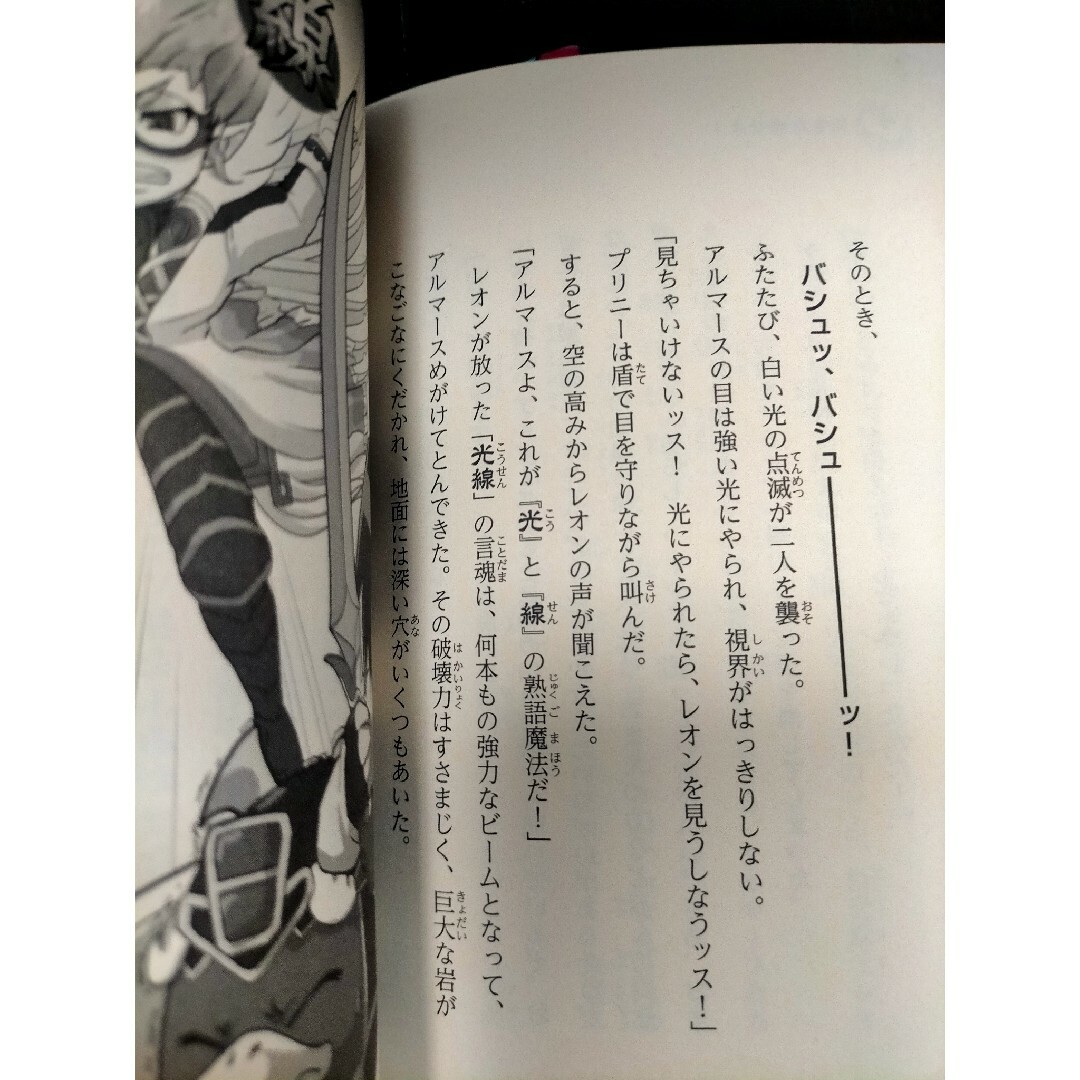 そのとき、
バシュッ、バシュ――――ッ！
ふたたび、白い光の点滅が二人を襲った。
アルマースの目は強い光にやられ、視界がはっきりしない。
「見ちゃいけないッス！　光にやられたら、レオンを見うしなうッス！」
プリニーは盾で目を守りながら叫んだ。
すると、空の高みからレオンの声が聞こえた。
「アルマースよ、これが『光』と『線』の熟語魔法だ！」
レオンが放った「光線」の言魂は、何本もの強力なビームとなって、
アルマースめがけてとんできた。その破壊力はすさまじく、巨大な岩が
こなごなにくだかれ、地面には深い穴がいくつもあいた。